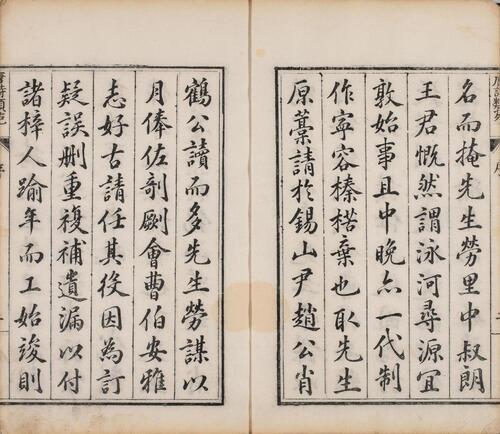 名而掩先生勞里中叔朗
王君慨然謂泳河尋源宜
敦始事且中晚亦一代制
作寧容榛楛棄也取先生
原藁請於錫山尹趙公肖
鶴公讀而多先生勞謀以
月俸佐剞劂會曹伯安雅
志好古請任其役因為訂
疑誤刪重複補遺漏以付
諸梓人踰年而工始竣則